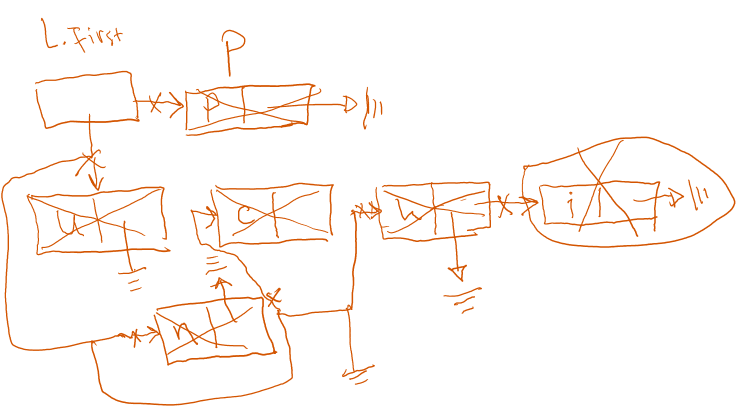 L.first
P
P
u
c
h
i
n